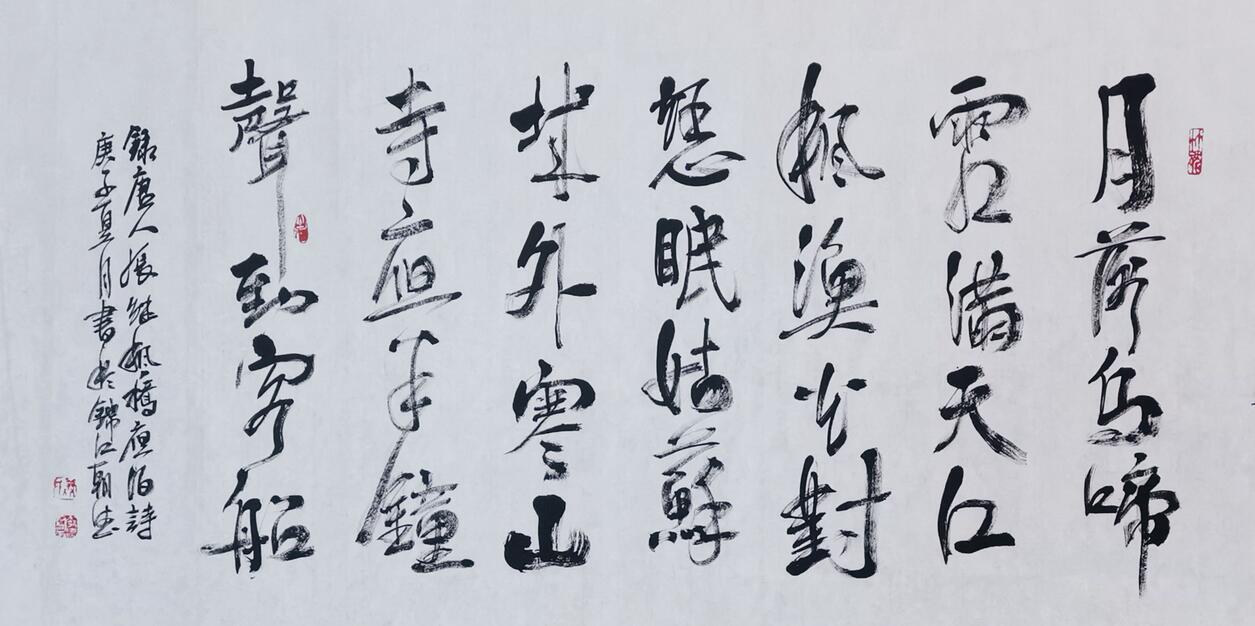 月落烏啼
霜滿天江
楓漁火對
愁眠姑蘇
城外寒山
寺夜半鐘
聲到客船
錄唐人張繼楓橋夜泊詩
庚子夏月書於錦江朝